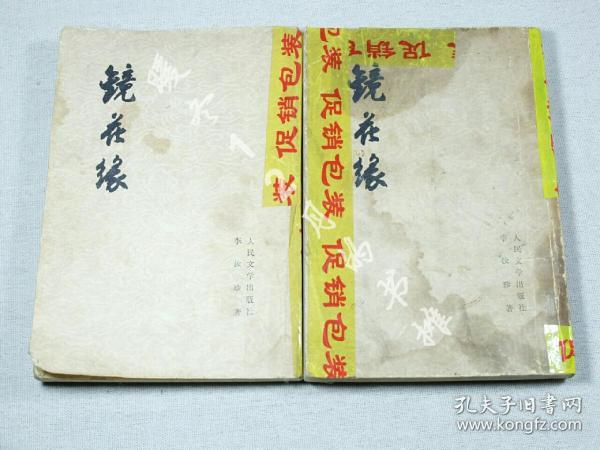 镜花缘
李汝珍 著
人民文学出版社
装 促销包装
镜花缘
李汝珍 著
人民文学出版社
包装 促销包装 促销包装
促销
孔夫子旧书网
www.kongfz.com